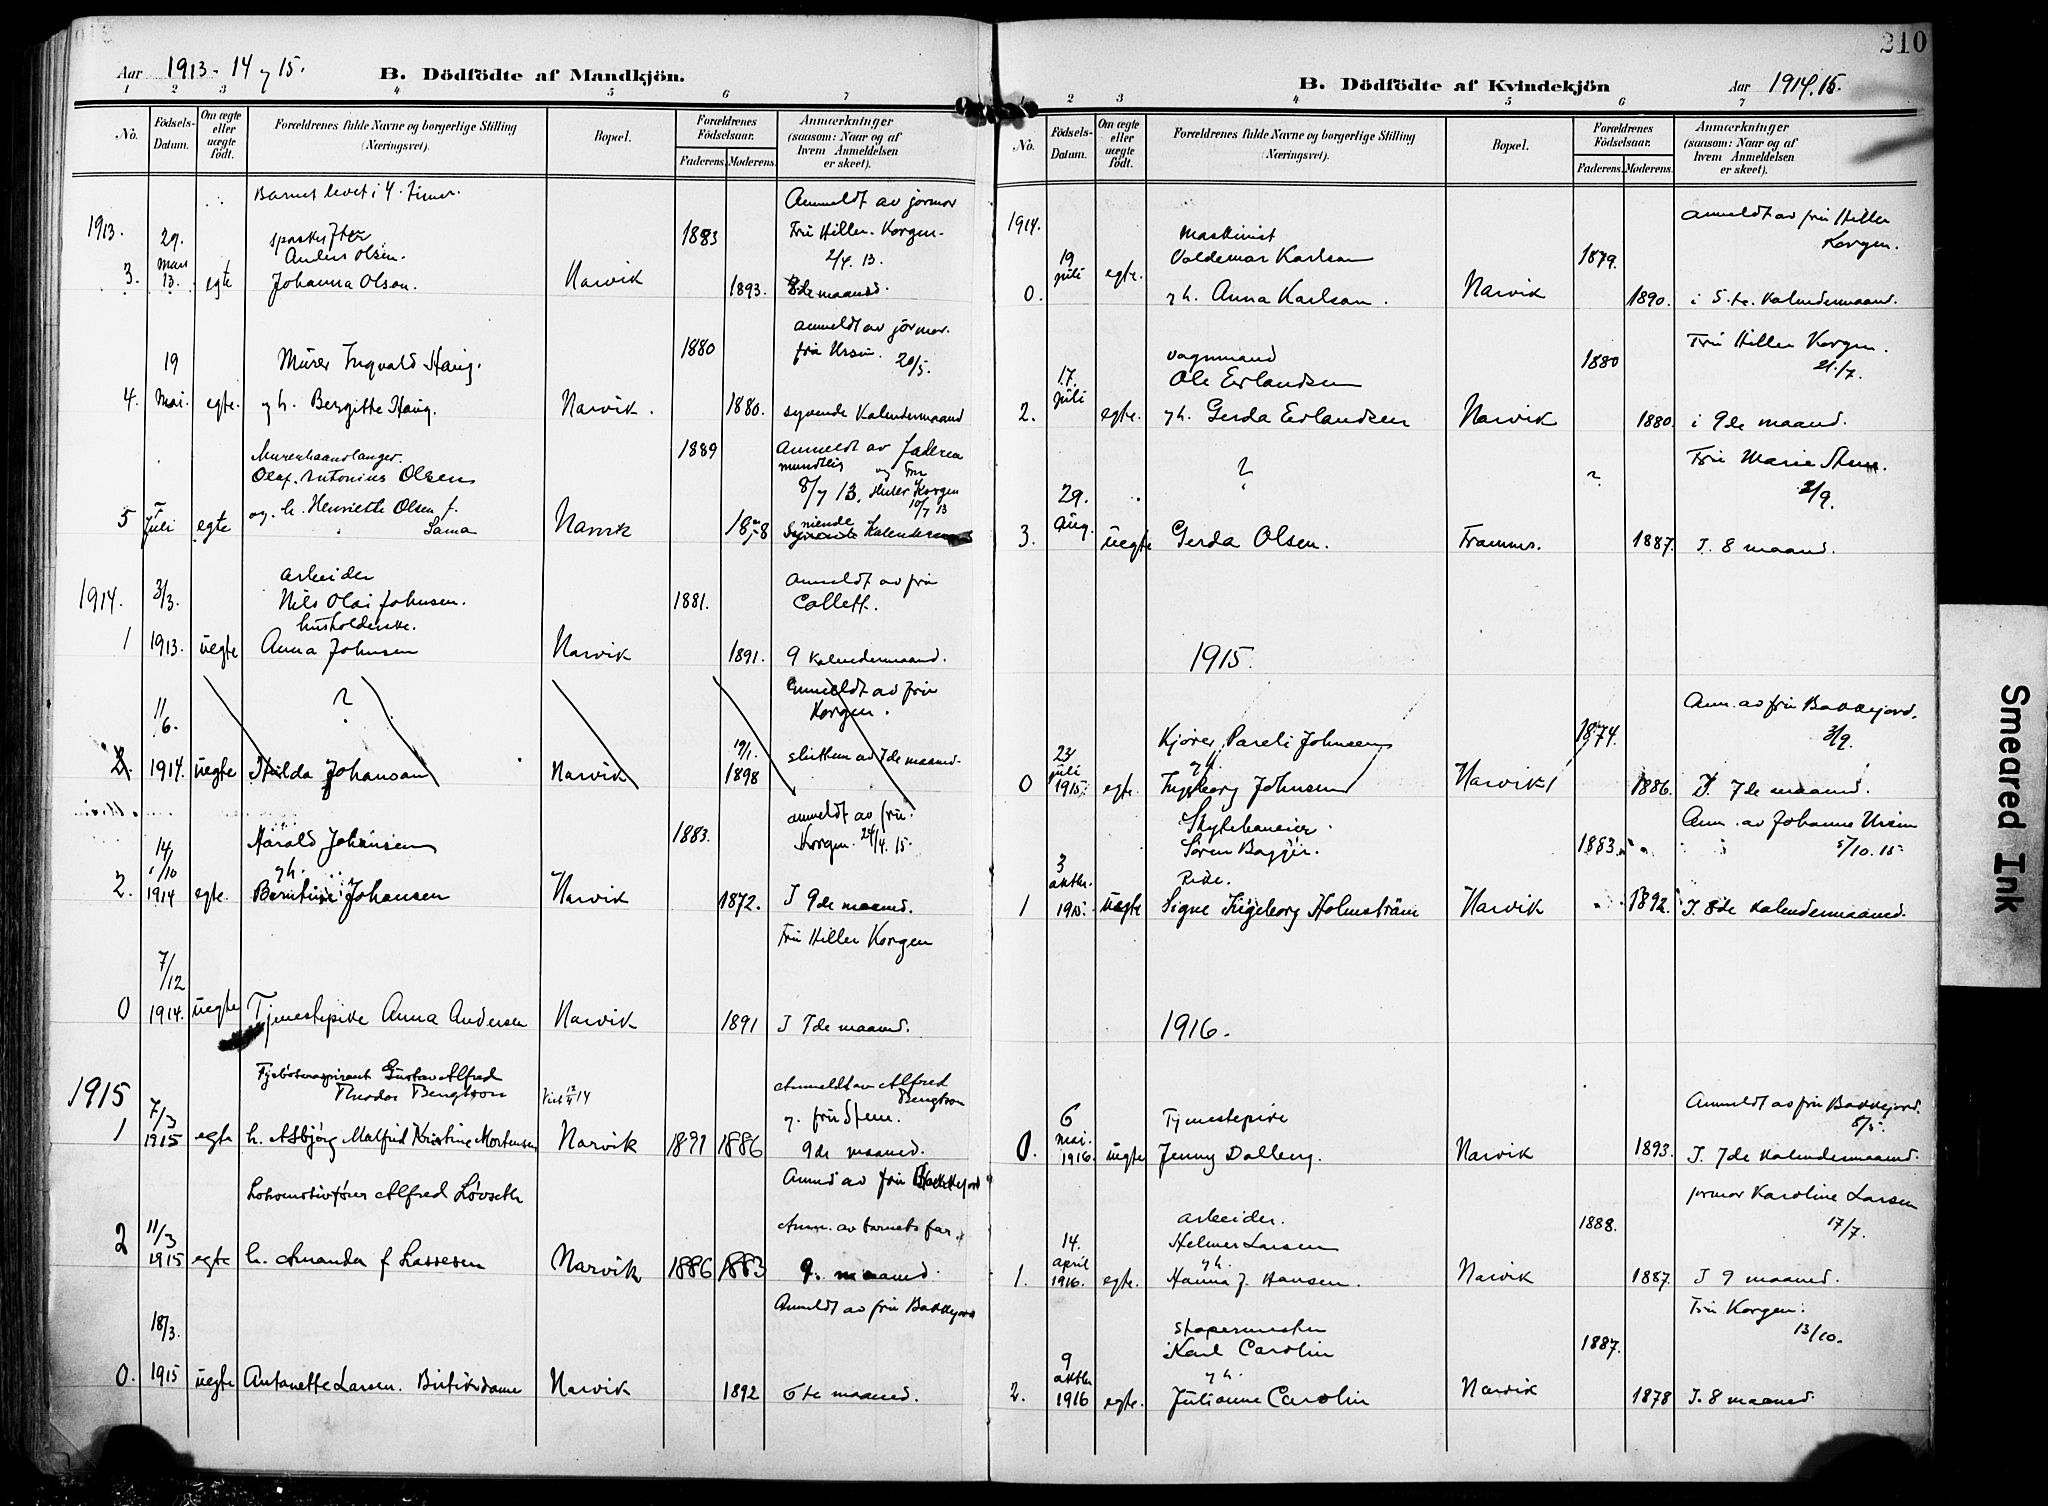 Aar 1913-14 og 15. B. Dödfödte af Mandkjön.
1 2 3 4 5 6 7
No. Födsels-Datum. Om ægte eller uægte födt. Forældrenes fulde Navne og borgerlige Stilling (Næringsvei). Bopæl. Forældrenes Födselsaar. Faderens. Moderens. Anmærkninger (saasom: Naar og af hvem Anmeldelsen er skeet).
Barnet levet i 4 timer.
Anmeldt av jormor
1913. 29. 1883 Fru Hiller Korgen
Anders Olsen. 2/4. 13.
3. mars 13. egte Johanna Olson. Narvik 1893. 8de maaned.
anmeldt av jormor
19 Murer Ingvald Haug. 1880 fru Ursin. 20/5.
4. Mai. egte. og h. Bergitte Haug. Narvik. 1880. syvende Kalendermaaned
Murerhaandlanger. 1889 Anmeldt av faderen
Olaf Antonius Olsen mundtlig og Fru
8/7 13. Hiller Korgen 10/7 13
5 Juli egte og h. Henriette Olsen f. Sama Narvik niende
Syvende Kalenderm
arbeider Anmeldt av fru
1914. 3/3. Nils Olai Johnsen. 1881. Collett.
husholderske.
1 1913. uegte Anna Johnsen Narvik 1891. 9 kalendermaaned.
? Anmeldt av fru
11/6. Korgen.
19/1. slutten av 7de maaned.
2. 1914. uegte Hilda Johansan Narvik 1898
anmeldt av fru
14 Harald Johansen 1883. Korgen. 24/4. 15.
/10 og h.
2. 1914 egte. Johansen Narvik 1872. I 9de maaned.
Fru Hiller Korgen
7/12
0 1914. uegte Tjenestepike Anna Andersen Narvik 1891 I 7de maaned.
Gustav Alfred Anmeldt av Alfred
1915 7/3 Theodor Bengtson Viet 14 Bengtson
og fru Stenn.
1 1915 egte h. Asbjørg Malfrid Kristine Mortensen Narvik 1891 1886 9de maaned.
Lokomotivfører Alfred Løvseth Anm av fru Bakkejord
11/3 Anm. av barnets far.
2 1915 egte h. Amanda f Lassesen Narvik 1886 1883 9. maaned.
18/3. Anmeldt av fru Bakkejord
0. 1915 uegte Antonette Larsen. Butikdame Narvik 1892 6te maaned.
210
B. Dödfödte af Kvindekjön Aar 1914.15.
1 2 3 4 5 6 7
No. Födsels-Datum. Om ægte eller uægte födt. Forældrenes fulde Navne og borgerlige Stilling (Næringsvei). Bopæl. Forældrenes Födselsaar. Faderens. Moderens. Anmærkninger (saasom: Naar og af hvem Anmeldelsen er skeet).
1914. Maskinist anmeldt av fru Hiller
19 Valdemar Karlson 1879. Korgen.
0. juli egte. og h. Anna Karlson. Narvik 1890. i 5.te. Kalendermaaned.
vognmand 1880 Fru Hiller Korgen.
17. Ole Erlandsen 21/7.
2. juli egte. og h. Gerda Erlandsen Narvik 1880. i 9de maaned.
? ? Fru Marie Stenn.
29. 2/9.
3. aug. uegte Gerda Olsen. Tromsø. 1887. I. 8 maaned.
1915.
Kjører Pareli Johnsen 1874. Anm. av fru Bakkejord.
23 og h. 3/9.
0 juli 1915. egte. Ingeborg Johnsen Narvik 1886. I. 7de maaned.
Anm. av Johanne Ursin
3 Sören Bagger. 1883. 5/10. 15
oktbr. Pike.
1 1915. uegte Signe Ingeborg Holmström Narvik 1892. I. 8de Kalendermaaned.
1916.
6 Tjenestepike Anmeldt av fru Bakkejord.
8/5.
0. mai. 1916. uegte Jenny Dalberg. Narvik 1893. I. 7de Kalendermaaned.
arbeider. 1888. jormor Karoline Larsen
14. Helmer Larsen 17/7.
april og h.
1. 1916. egte. Hanna J. Hansen. Narvik 1887. I 9 maaned.
Fru Korgen.
9 Karl Carolin 1887. 13/10.
oktbr og h.
2. 1916 egte. Julianne Carolin Narvik 1878 I. 8 maaned.
Smeared Ink